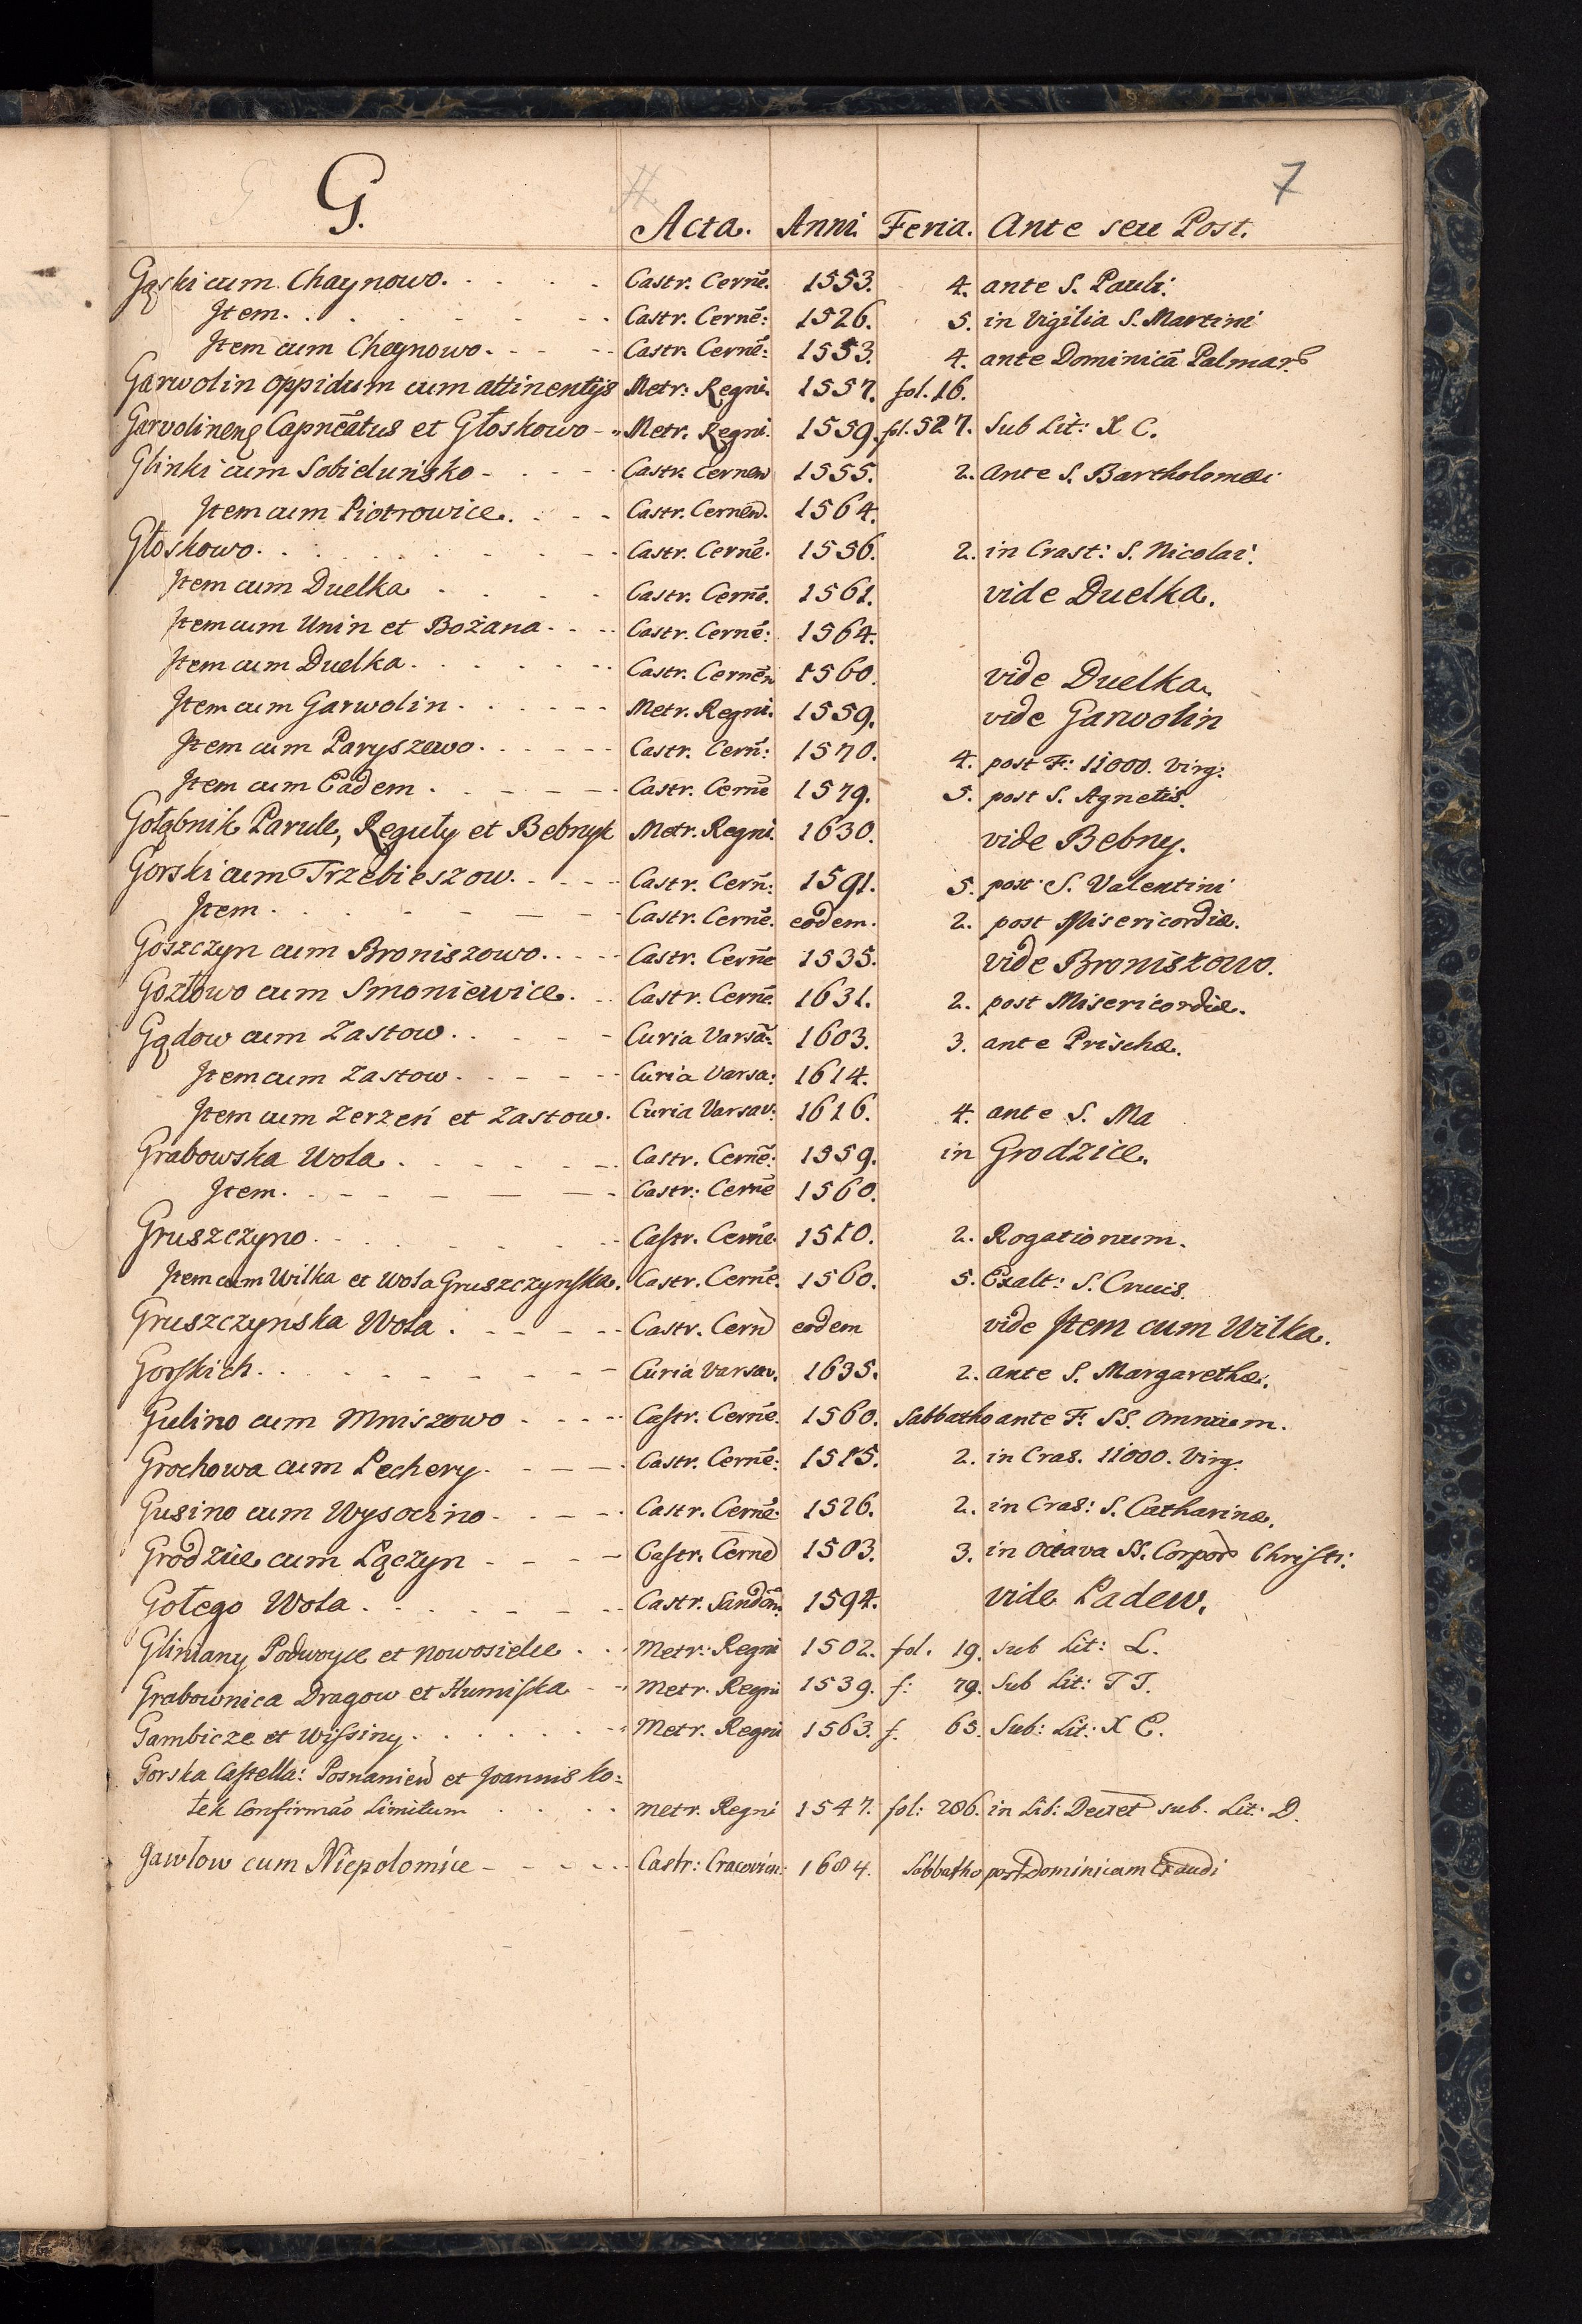 7
G. Acta. Anni. Feria. Ante seu Post.
Gąski cum Chaynowo. Castr. Cernē. 1553. 4. ante S. Pauli.
Item. Castr. Cernē: 1526. 5. in Vigilia S. Martini
Item cum Cheynowo. Castr. Cernē: 1553. 4. ante Dominicā Palmar.
Garwolin oppidum cum attinentijs Metr: Regni. 1557. fol. 16.
Capnēatus et Głoskowo Metr. Regni. 1559. fol. 527. Sub Lit: X C.
Glinki cum Sobieduńsko Castr. Cernen 1555. 2. Ante S. Bartholomæi
Item cum Piotrowice. Castr. Cernen. 1564.
Głoskowo. Castr. Cernē. 1556. 2. in Crast: S. Nicolai.
Item cum Duelka Castr. Cernē. 1561. vide Duelka.
Item cum Unin et Bożana. Castr. Cernē: 1564.
Item cum Duelka. Castr. Cernēn 1560. vide Duelka.
Item cum Garwolin. Metr. Regni. 1559. vide Garwolin
Item cum Paryszewo. Castr. Cern̄: 1570. 4. post F: 11000. Virg:
Item cum Eadem. Castr. Cernē 1579. 5. post S. Agnetis.
Gołąbnik Parule, Reguły et Bebnyk Metr. Regni. 1630. vide Bebny.
Gorski cum Trzebieszow. Castr. Cern̄: 1591. 5. post S. Valentini
Item. Castr. Cernē. eodem. 2. post Misericordiæ.
Goszczyn cum Broniszowo. Castr. Cernē 1535. vide Broniszowo.
Gozłowo cum Smoniewice. Castr. Cernē. 1631. 2. post Misericordiæ.
Gądow cum Zastow. Curia Varsā: 1603. 3. ante Prischæ.
Item cum Zastow. Curia Varsa: 1614.
Item cum Zerzeń et Zastow. Curia Varsav: 1616. 4. ante S. Ma
Grabowska Wola. Castr. Cernē: 1559. in Grodzice.
Item. Castr: Cernē 1560.
Gruszczyno. Castr. Cernē. 1510. 2. Rogationum.
Item cum Wilka et Wola Gruszczynska. Castr. Cernē. 1560. 5. Exalt: S. Crucis.
Gruszczynska Wola. Castr. Cern eodem vide Item cum Wilka.
Gorskich. Curia Varsav. 1635. 2. ante S. Margarethæ.
Gulino cum Mniszowo Castr. Cernē. 1560. Sabbatho ante F. SS. Omnium.
Grochowa cum Pechery. Castr. Cernē: 1515. 2. in Cras. 11000. Virg.
Gusino cum Wysocino Castr. Cernē. 1526. 2. in Cras: S. Catharinæ.
Grodzice cum Łączyn Castr. Cern 1503. 3. in Octava SS. Corpor Christi:
Gołego Wola. Castr. Sandōm: 1594. vide Padew.
Gliniany Podwoyce et Nowosielce Metr: Regni 1502. fol. 19. sub Lit: L.
Grabownica Dragow et Humiska Metr. Regni 1539. f: 79. Sub Lit: T T.
Gambicze et Wissiny. Metr. Regni 1563. f. 65. Sub: Lit: X C.
Gorska Castella: Posnanien et Joannis Ko=
tek Confirmāo Limitum Metr. Regni 1547. fol: 286. in Lib: Decret sub. Lit: D.
Gawłow cum Niepolomice Castr: Cracovien: 1684. Sabbatho post Dominicam Exaudi